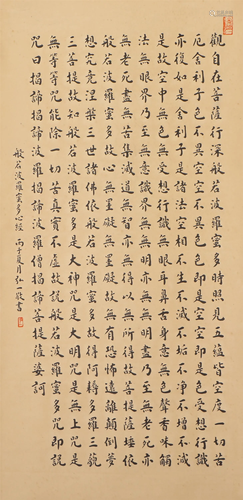 觀自在菩薩行深般若波羅蜜多時照見五蘊皆空度一切苦
厄舍利子色不異空空不異色色即是空空即是色受想行識
亦復如是舍利子是諸法空相不生不滅不垢不淨不增不減
是故空中無色無受想行識無眼耳鼻舌身意無色聲香味觸
法無眼界乃至無意識界無無明亦無無明盡乃至無老死亦
無老死盡無苦集滅道無智亦無得以無所得故菩提薩埵依
般若波羅蜜多故心無罣礙無罣礙故無有恐怖遠離顛倒夢
想究竟涅槃三世諸佛依般若波羅蜜多故得阿耨多羅三藐
三菩提故知般若波羅蜜多是大神咒是大明咒是無上咒是
無等等咒能除一切苦真實不虛故說般若波羅蜜多咒即說
咒曰揭諦揭諦波羅揭諦波羅僧揭諦菩提薩婆訶
般若波羅蜜多心經 丙子夏月弘一敬書